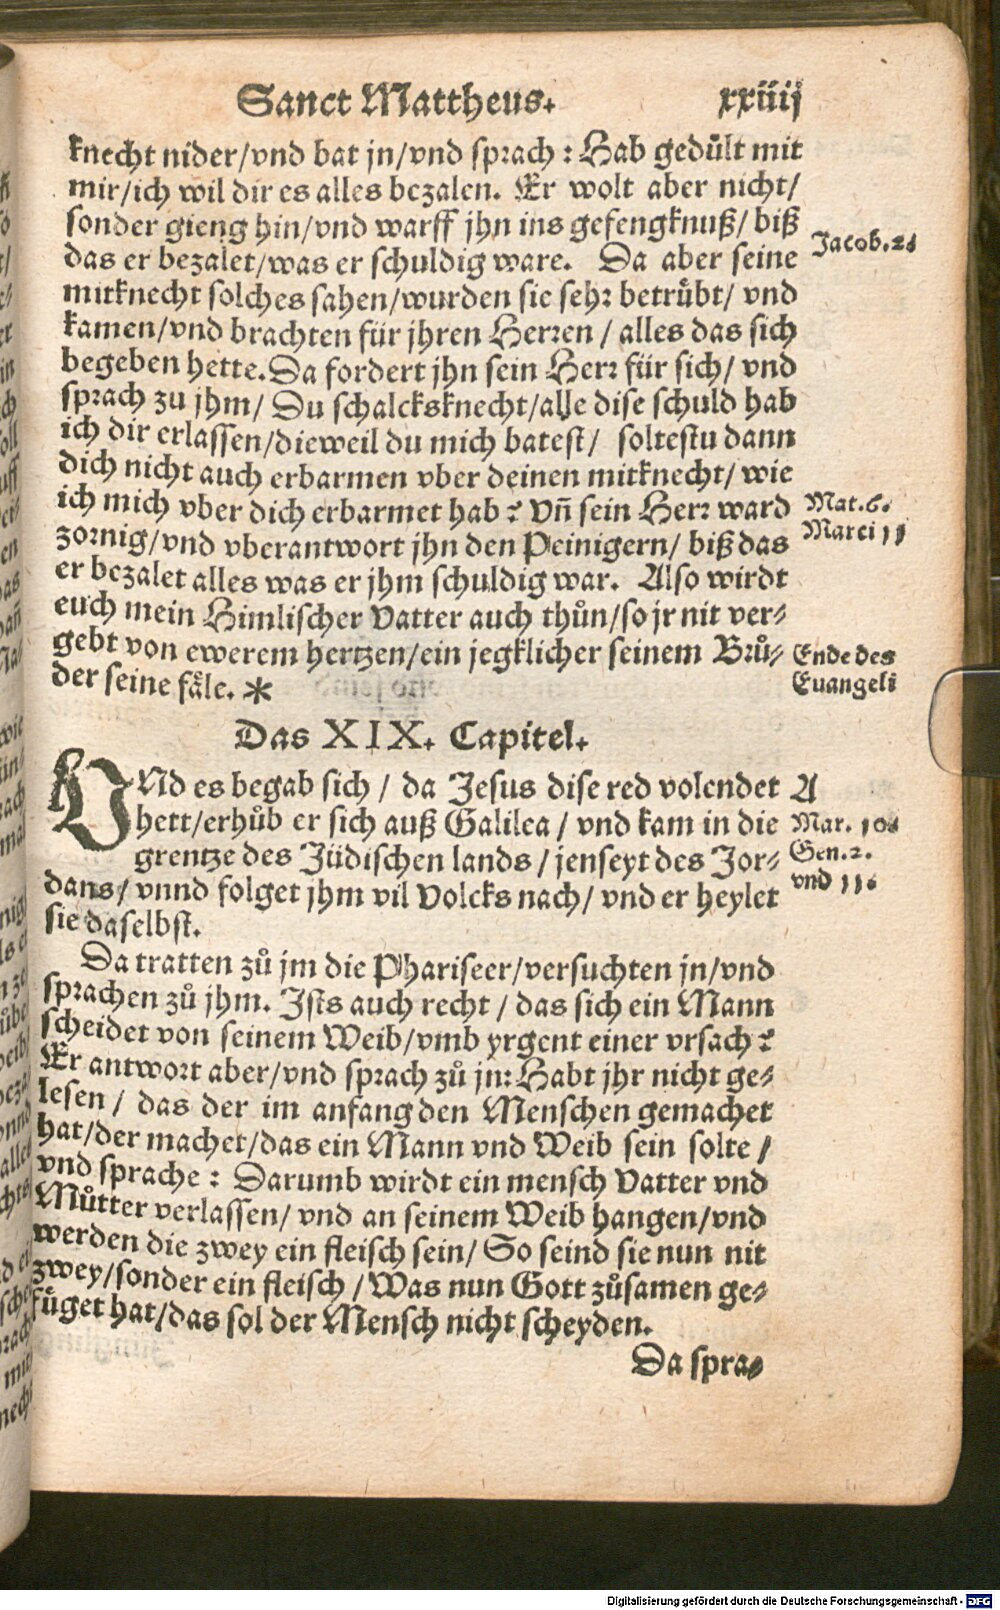 Sanct Mattheus. xxiiij
knecht nider/vnd bat jn/vnd sprach : Hab gedůlt mit
mir/ich wil dir es alles bezalen. Er wolt aber nicht/
sonder gieng hin/vnd warff jhn ins gefengknuß/ biß
Jacob.2.
das er bezalet/was er schuldig ware. Da aber seine
mitknecht solches sahen/wurden sie sehr betrůbt/ vnd
kamen/vnd brachten für jhren Herren / alles das sich
begeben hette. Da fordert jhn sein Herr für sich/ vnd
sprach zu jhm/ Du schalcksknecht/alle dise schuld hab
ich dir erlassen/dieweil du mich batest/ soltestu dann
dich nicht auch erbarmen vber deinen mitknecht/ wie
ich mich vber dich erbarmet hab ? Vñ sein Herr ward
Mat.6.
Marci 11
zornig/vnd vberantwort jhn den Peinigern/ biß das
er bezalet alles was er jhm schuldig war. Also wirdt
euch mein Himlischer Vatter auch thůn/so jr nit ver-
gebt von ewerem hertzen/ein jegklicher seinem Brů-
Ende des
Euangeli
der seine fåle. *
Das XIX. Capitel.
VNd es begab sich / da Jesus dise red volendet
A
hett/erhůb er sich auß Galilea / vnd kam in die
Mar. 10.
grentze des Jüdischen lands / jenseyt des Jor-
Gen.2.
dans/ vnnd folget jhm vil Volcks nach/ vnd er heylet
vnd 11.
sie daselbst.
Da tratten zů jm die Phariseer/versuchten jn/vnd
sprachen zů jhm. Ists auch recht / das sich ein Mann
scheidet von seinem Weib/vmb yrgent einer vrsach ?
Er antwort aber/vnd sprach zů jn: Habt jhr nicht ge-
lesen / das der im anfang den Menschen gemachet
hat/der machet/das ein Mann vnd Weib sein solte /
vnd sprache : Darumb wirdt ein mensch Vatter vnd
Můtter verlassen/ vnd an seinem Weib hangen/vnd
werden die zwey ein fleisch sein/ So seind sie nun nit
zwey/sonder ein fleisch / Was nun Gott zůsamen ge-
füget hat/das sol der Mensch nicht scheyden.
Da spra-
Digitalisierung gefördert durch die Deutsche Forschungsgemeinschaft - DFG